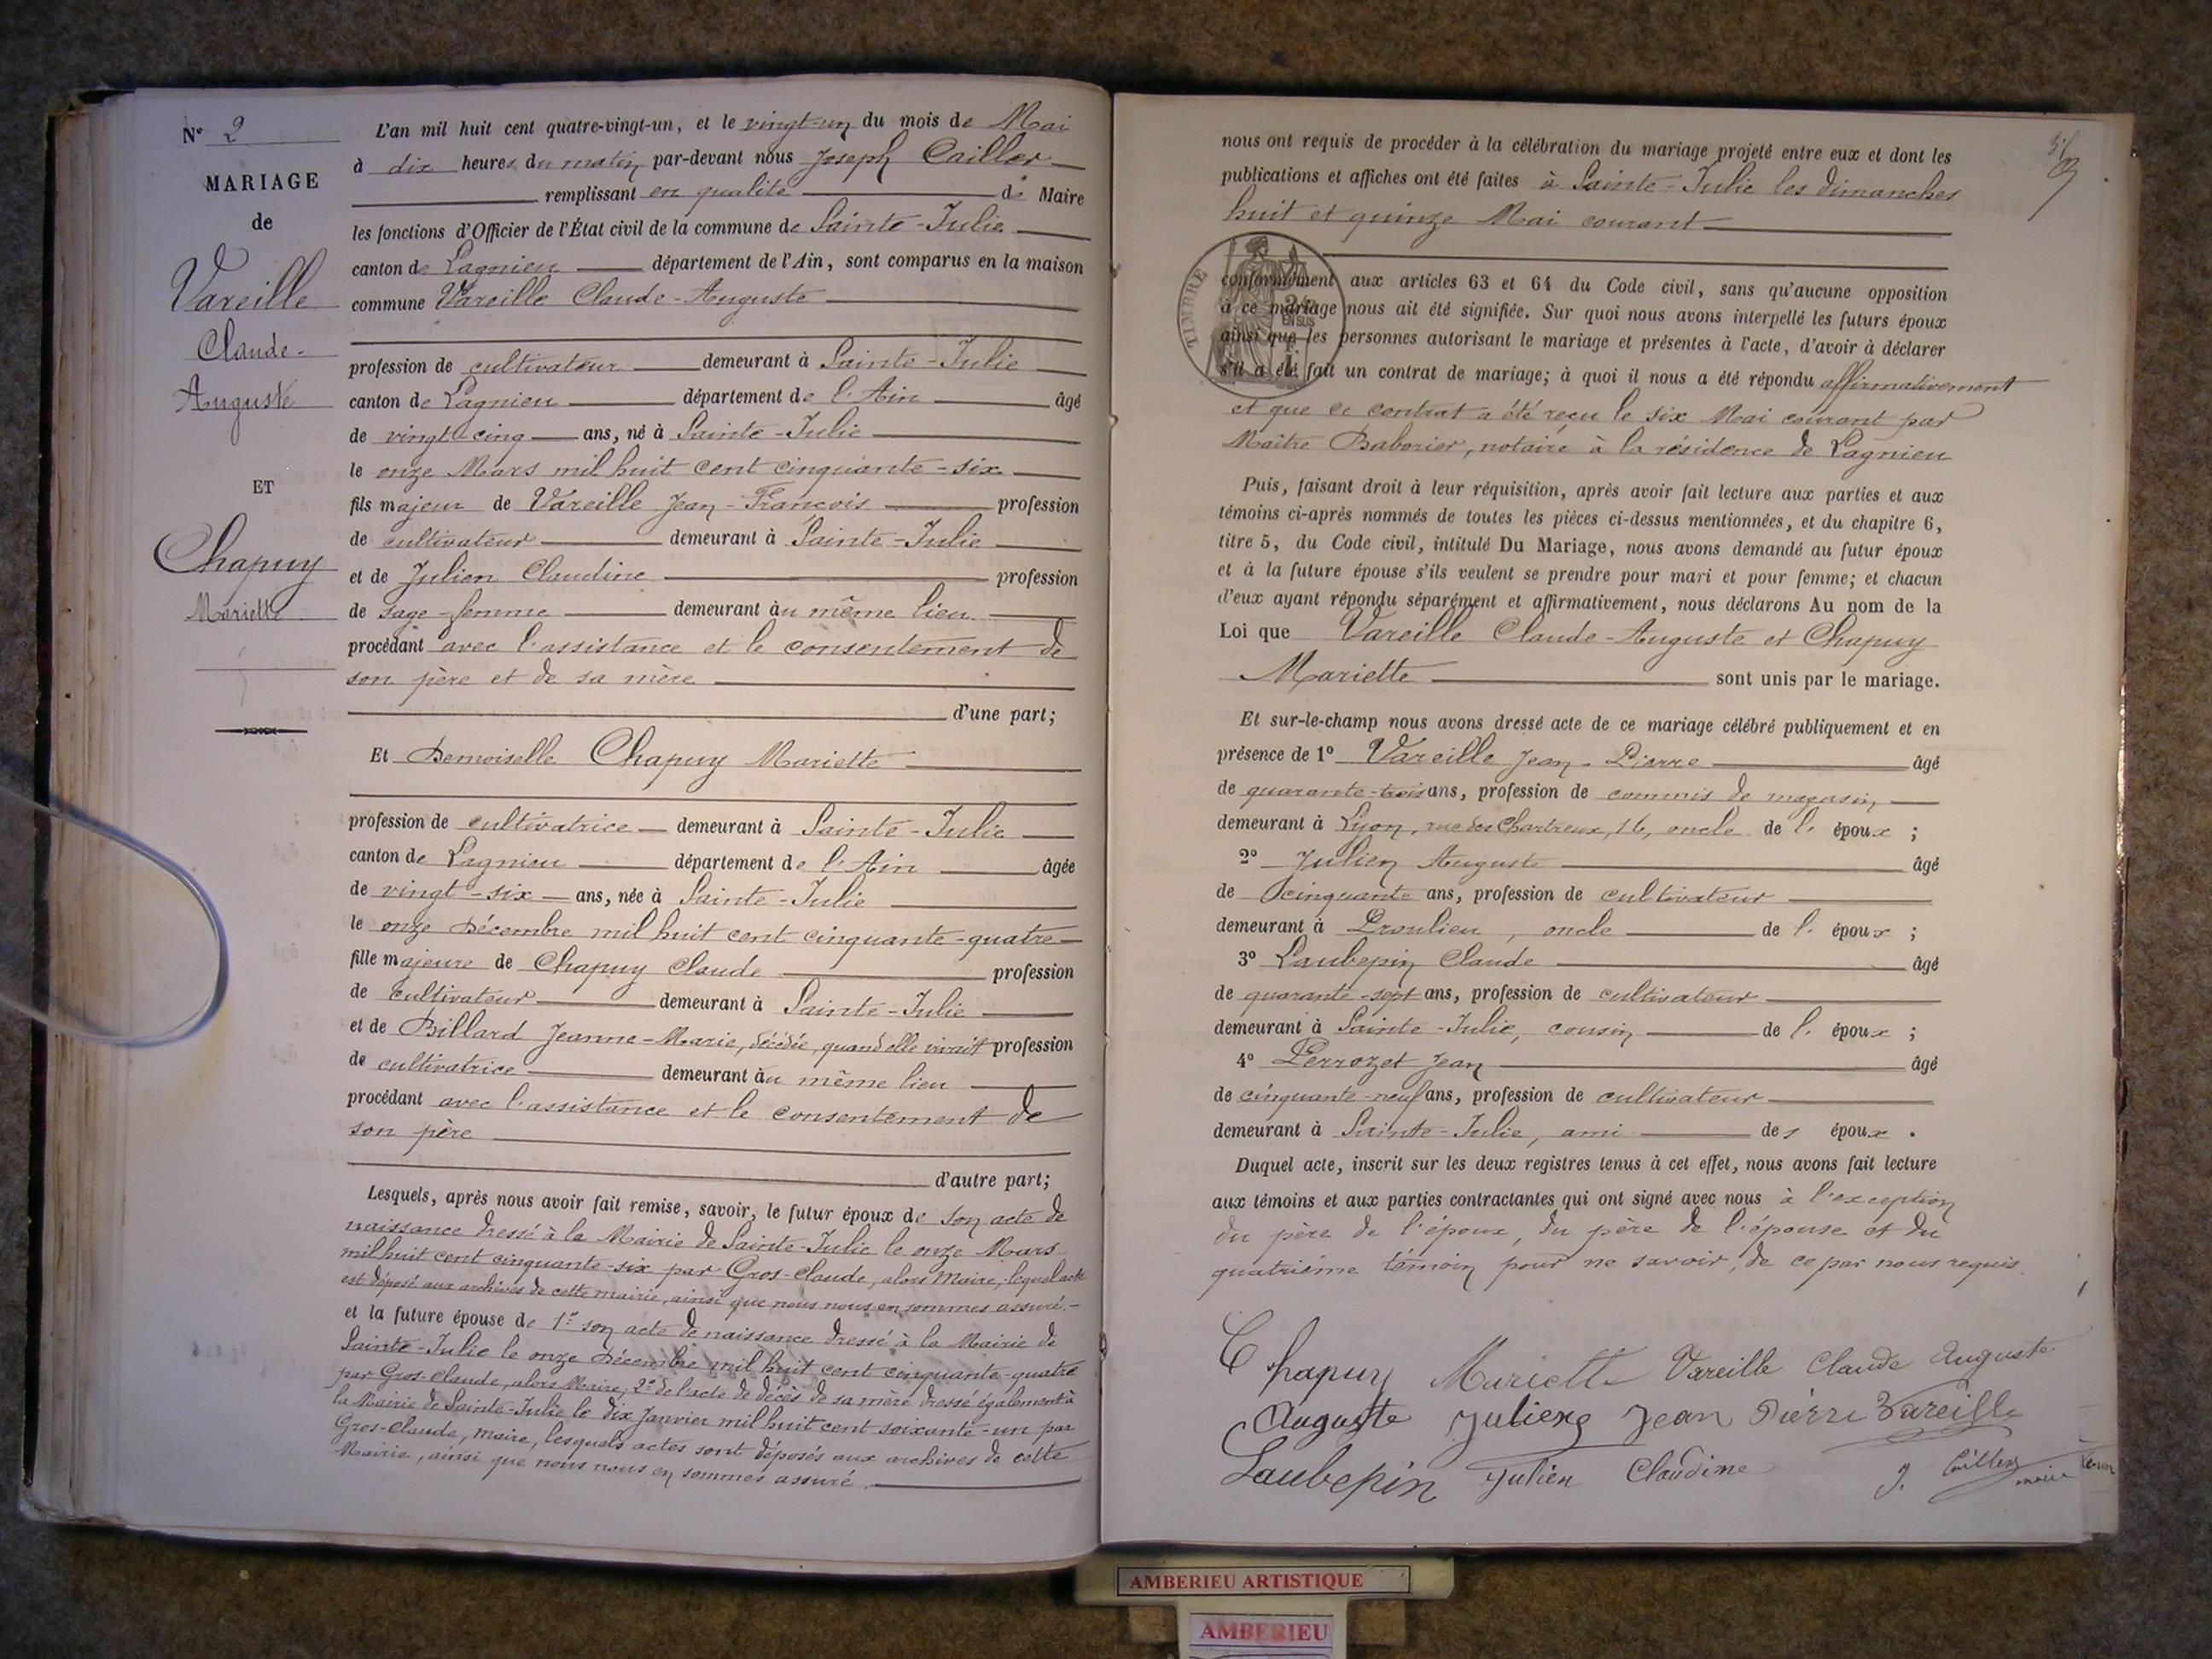 N° 2
MARIAGE
de
Vareille
Claude-
Auguste
ET
Chapuy
Mariette
L'an mil huit cent quatre-vingt-un, et le vingt-un du mois de Mai
à dix heures du matin par-devant nous Joseph Cailler
remplissant en qualité de Maire
les fonctions d'Officier de l'État civil de la commune de Sainte-Julie
canton de Lagnieu département de l'Ain, sont comparus en la maison
commune Vareille Claude-Auguste
profession de cultivateur demeurant à Sainte-Julie
canton de Lagnieu département de l'Ain âgé
de vingt-cinq ans, né à Sainte-Julie
le onze Mars mil huit cent cinquante-six
fils majeur de Vareille Jean-François profession
de cultivateur demeurant à Sainte-Julie
et de Julien Claudine profession
de sage-femme demeurant au même lieu
procédant avec l'assistance et le consentement de
son père et de sa mère
d'une part;
Et Demoiselle Chapuy Mariette
profession de cultivatrice demeurant à Sainte-Julie
canton de Lagnieu département de l'Ain âgée
de vingt-six ans, née à Sainte-Julie
le onze Décembre mil huit cent cinquante-quatre
fille majeure de Chapuy Claude profession
de cultivateur demeurant à Sainte-Julie
et de Billard Jeanne-Marie, décédée, quand elle vivait profession
de cultivatrice demeurant au même lieu
procédant avec l'assistance et le consentement de
son père
d'autre part;
Lesquels, après nous avoir fait remise, savoir, le futur époux de son acte de
naissance dressé à la Mairie de Sainte-Julie le onze Mars
mil huit cent cinquante-six par Gros-Claude, alors Maire, lequel acte
est déposé aux archives de cette mairie, ainsi que nous nous en sommes assuré.-
et la future épouse de 1° son acte de naissance dressé à la Mairie de
Sainte-Julie le onze Décembre mil huit cent cinquante-quatre
par Gros-Claude, alors Maire, 2° de l'acte de décès de sa mère dressé également à
la Mairie de Sainte-Julie le dix Janvier mil huit cent soixante-un par
Gros-Claude, maire, lesquels actes sont déposés aux archives de cette
Mairie, ainsi que nous nous en sommes assuré.
nous ont requis de procéder à la célébration du mariage projeté entre eux et dont les
publications et affiches ont été faites à Sainte-Julie les dimanches
huit et quinze Mai courant
TIMBRE
2/10
EN SUS
conformément aux articles 63 et 64 du Code civil, sans qu'aucune opposition
à ce mariage nous ait été signifiée. Sur quoi nous avons interpellé les futurs époux
ainsi que les personnes autorisant le mariage et présentes à l'acte, d'avoir à déclarer
s'il a été fait un contrat de mariage; à quoi il nous a été répondu affirmativement
et que ce contrat a été reçu le six Mai courant par
Maître Baborier, notaire à la résidence de Lagnieu
Puis, faisant droit à leur réquisition, après avoir fait lecture aux parties et aux
témoins ci-après nommés de toutes les pièces ci-dessus mentionnées, et du chapitre 6,
titre 5, du Code civil, intitulé Du Mariage, nous avons demandé au futur époux
et à la future épouse s'ils veulent se prendre pour mari et pour femme; et chacun
d'eux ayant répondu séparément et affirmativement, nous déclarons Au nom de la
Loi que Vareille Claude-Auguste et Chapuy
Mariette sont unis par le mariage.
Et sur-le-champ nous avons dressé acte de ce mariage célébré publiquement et en
présence de 1° Vareille Jean-Pierre âgé
de quarante-trois ans, profession de commis de magasin
demeurant à Lyon, rue des Chartreux, 16, oncle de l'époux ;
2° Julien Auguste âgé
de cinquante ans, profession de cultivateur
demeurant à Proulieu, oncle de l'époux ;
3° Laubepin Claude âgé
de quarante-sept ans, profession de cultivateur
demeurant à Sainte-Julie, cousin de l'époux ;
4° Perrozet Jean âgé
de cinquante-neuf ans, profession de cultivateur
demeurant à Sainte-Julie, ami des époux .
Duquel acte, inscrit sur les deux registres tenus à cet effet, nous avons fait lecture
aux témoins et aux parties contractantes qui ont signé avec nous à l'exception
du père de l'époux, du père de l'épouse et du
quatrième témoin pour ne savoir, de ce par nous requis.
Chapuy Mariette Vareille Claude Auguste
Auguste Julien Jean Pierre Vareille
Laubepin Julien Claudine J. Cailler maire
AMBERIEU ARTISTIQUE
AMBERIEU